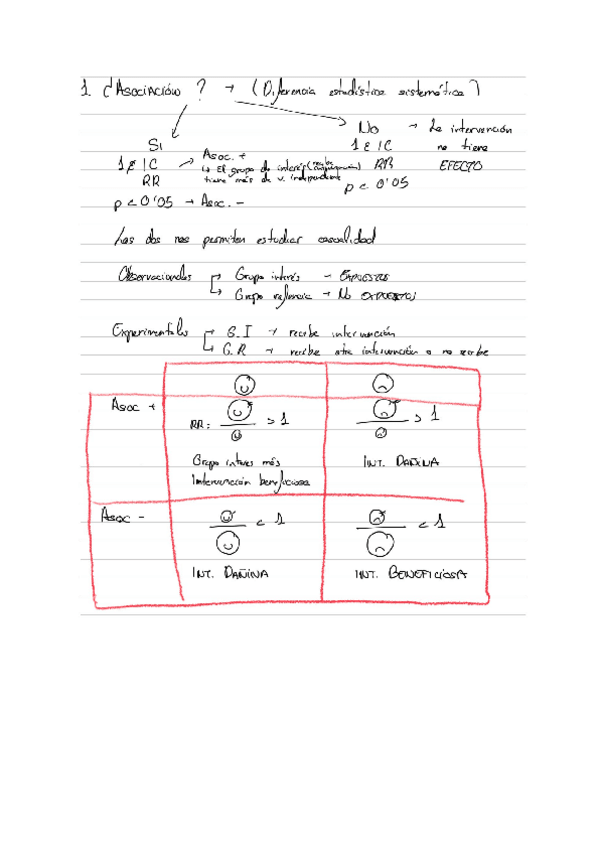 1. ¿Asociación? → (Diferencia estadística sistemática)
Si
1 ∉ IC
RR
p < 0'05 → Asoc. -
→ Asoc. +
↳ El grupo de interés (recibe
tiene más de v. independiente
No → La intervención
1 ∈ IC no tiene
RR EFECTO
p < 0'05
Las dos nos permiten estudiar casualidad
Observacionales → Grupo interés → EXPUESTOS
↳ Grupo referencia → No EXPUESTOS
Experimentales → G.I → recibe intervención
↳ G.R → recibe otra intervención o no recibe
Asoc +
RR: > 1
Grupo interes más
Intervención beneficiosa
> 1
INT. DAÑINA
Asoc -
< 1
INT. DAÑINA
< 1
INT. BENEFICIOSA